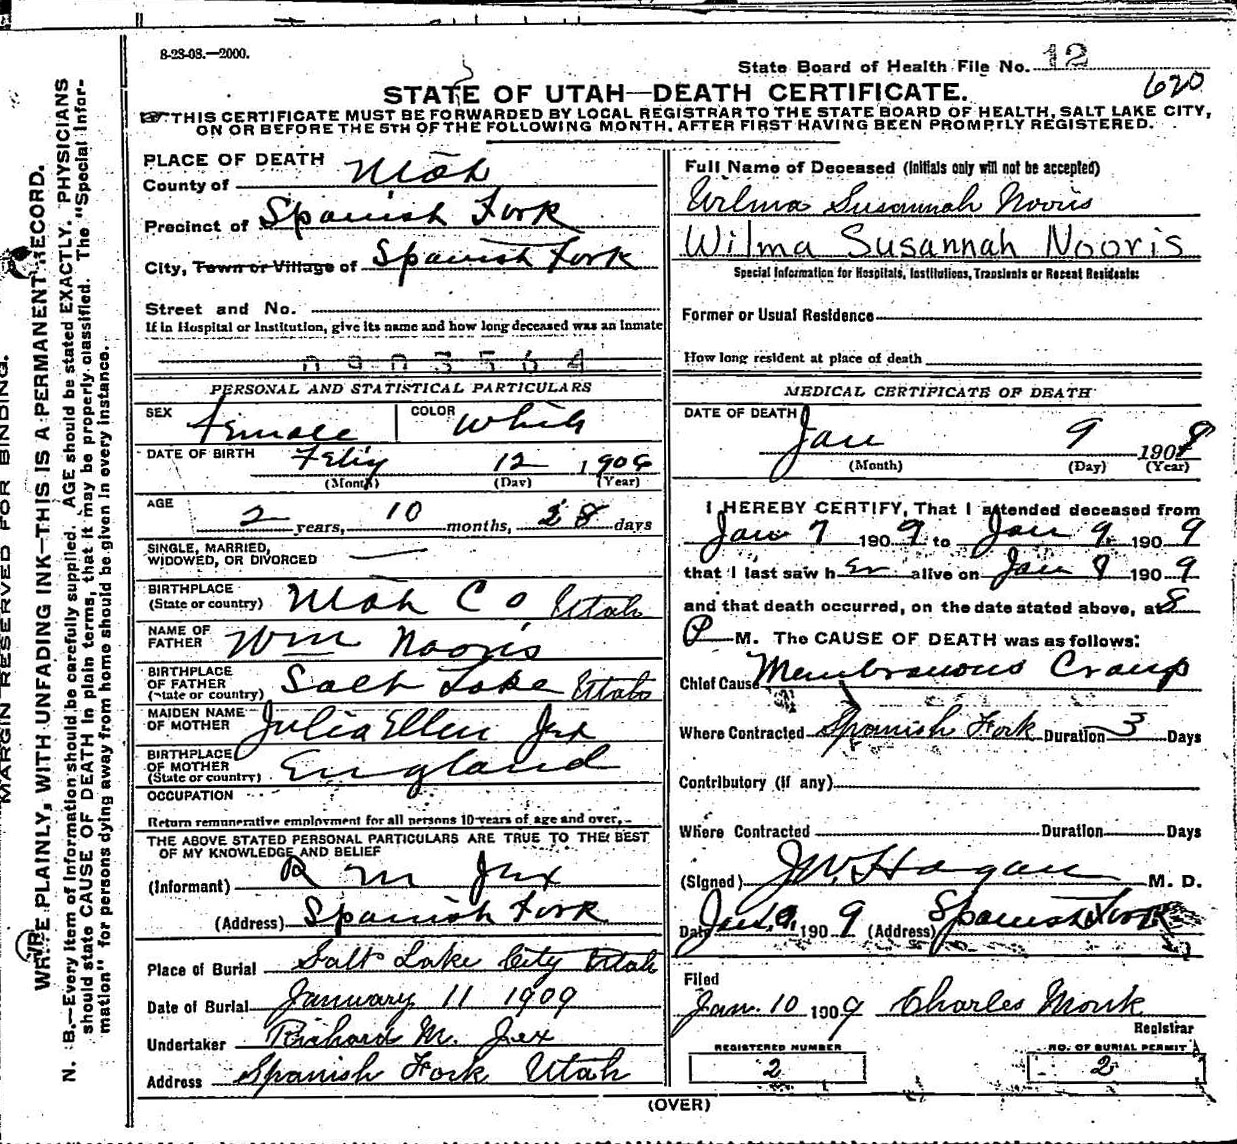 8-23-08.—2000.
State Board of Health File No. 12
620
STATE OF UTAH—DEATH CERTIFICATE.
THIS CERTIFICATE MUST BE FORWARDED BY LOCAL REGISTRAR TO THE STATE BOARD OF HEALTH, SALT LAKE CITY,
ON OR BEFORE THE 5TH OF THE FOLLOWING MONTH, AFTER FIRST HAVING BEEN PROMPTLY REGISTERED.
MARGIN RESERVED FOR BINDING.
WRITE PLAINLY, WITH UNFADING INK—THIS IS A PERMANENT RECORD.
N. B.—Every item of information should be carefully supplied. AGE should be stated EXACTLY. PHYSICIANS
should state CAUSE OF DEATH in plain terms, that it may be properly classified. The "Special Infor-
mation" for persons dying away from home should be given in every instance.
PLACE OF DEATH
County of Utah
Precinct of Spanish Fork
City, Town or Village of Spanish Fork
Street and No.
If in Hospital or Institution, give its name and how long deceased was an inmate
0903564
PERSONAL AND STATISTICAL PARTICULARS
SEX female COLOR White
DATE OF BIRTH Feby 12 1906
(Month) (Day) (Year)
AGE 2 years, 10 months, 28 days
SINGLE, MARRIED,
WIDOWED, OR DIVORCED
BIRTHPLACE
(State or country) Utah Co Utah
NAME OF
FATHER Wm Nooris
BIRTHPLACE
OF FATHER
(State or country) Salt Lake Utah
MAIDEN NAME
OF MOTHER Julia Ellen Jex
BIRTHPLACE
OF MOTHER
(State or country) England
OCCUPATION
Return remunerative employment for all persons 10 years of age and over.
THE ABOVE STATED PERSONAL PARTICULARS ARE TRUE TO THE BEST
OF MY KNOWLEDGE AND BELIEF
(Informant) R M Jex
(Address) Spanish Fork
Place of Burial Salt Lake City Utah
Date of Burial January 11 1909
Undertaker Richard M. Jex
Address Spanish Fork Utah
Full Name of Deceased (Initials only will not be accepted)
Wilma Susannah Nooris
Wilma Susannah Nooris
Special Information for Hospitals, Institutions, Transients or Recent Residents:
Former or Usual Residence
How long resident at place of death
MEDICAL CERTIFICATE OF DEATH
DATE OF DEATH
Jan 9 1909
(Month) (Day) (Year)
I HEREBY CERTIFY, That I attended deceased from
Jan 7 1909 to Jan 9 1909
that I last saw her alive on Jan 9 1909
and that death occurred, on the date stated above, at 8
P M. The CAUSE OF DEATH was as follows:
Chief Cause Membranous Croup
Where Contracted Spanish Fork Duration 3 Days
Contributory (if any)
Where Contracted Duration Days
(Signed) J W. Hagan M. D.
Date Jan. 9, 1909 (Address) Spanish Fork
Filed
Jan. 10 1909 Charles Monk
Registrar
REGISTERED NUMBER NO. OF BURIAL PERMIT
2 2
(OVER)